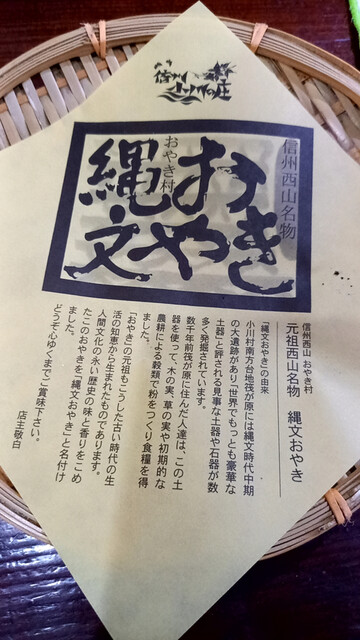 信州小川の庄
信州西山名物
おやき村
縄文おやき
信州西山 おやき村
元祖西山名物 縄文おやき
「縄文おやき」の由来
小川村南方台地筏が原には縄文時代中期
の大遺跡があり「世界でもっとも豪華な
土器」と評される見事な土器や石器が数
多く発掘されています。
数千年前筏が原に住んだ人達は、この土
器を使って、木の実、草の実や初期的な
農耕による穀類で粉をつくり食糧を得
ました。
「おやき」の元祖もこうした古い時代の生
活の知恵から生まれたものであります。
人間文化の永い歴史の味と香りをこめ
たこのおやきを「縄文おやき」と名付け
ました。
どうぞ心ゆくまでご賞味下さい。
店主敬白